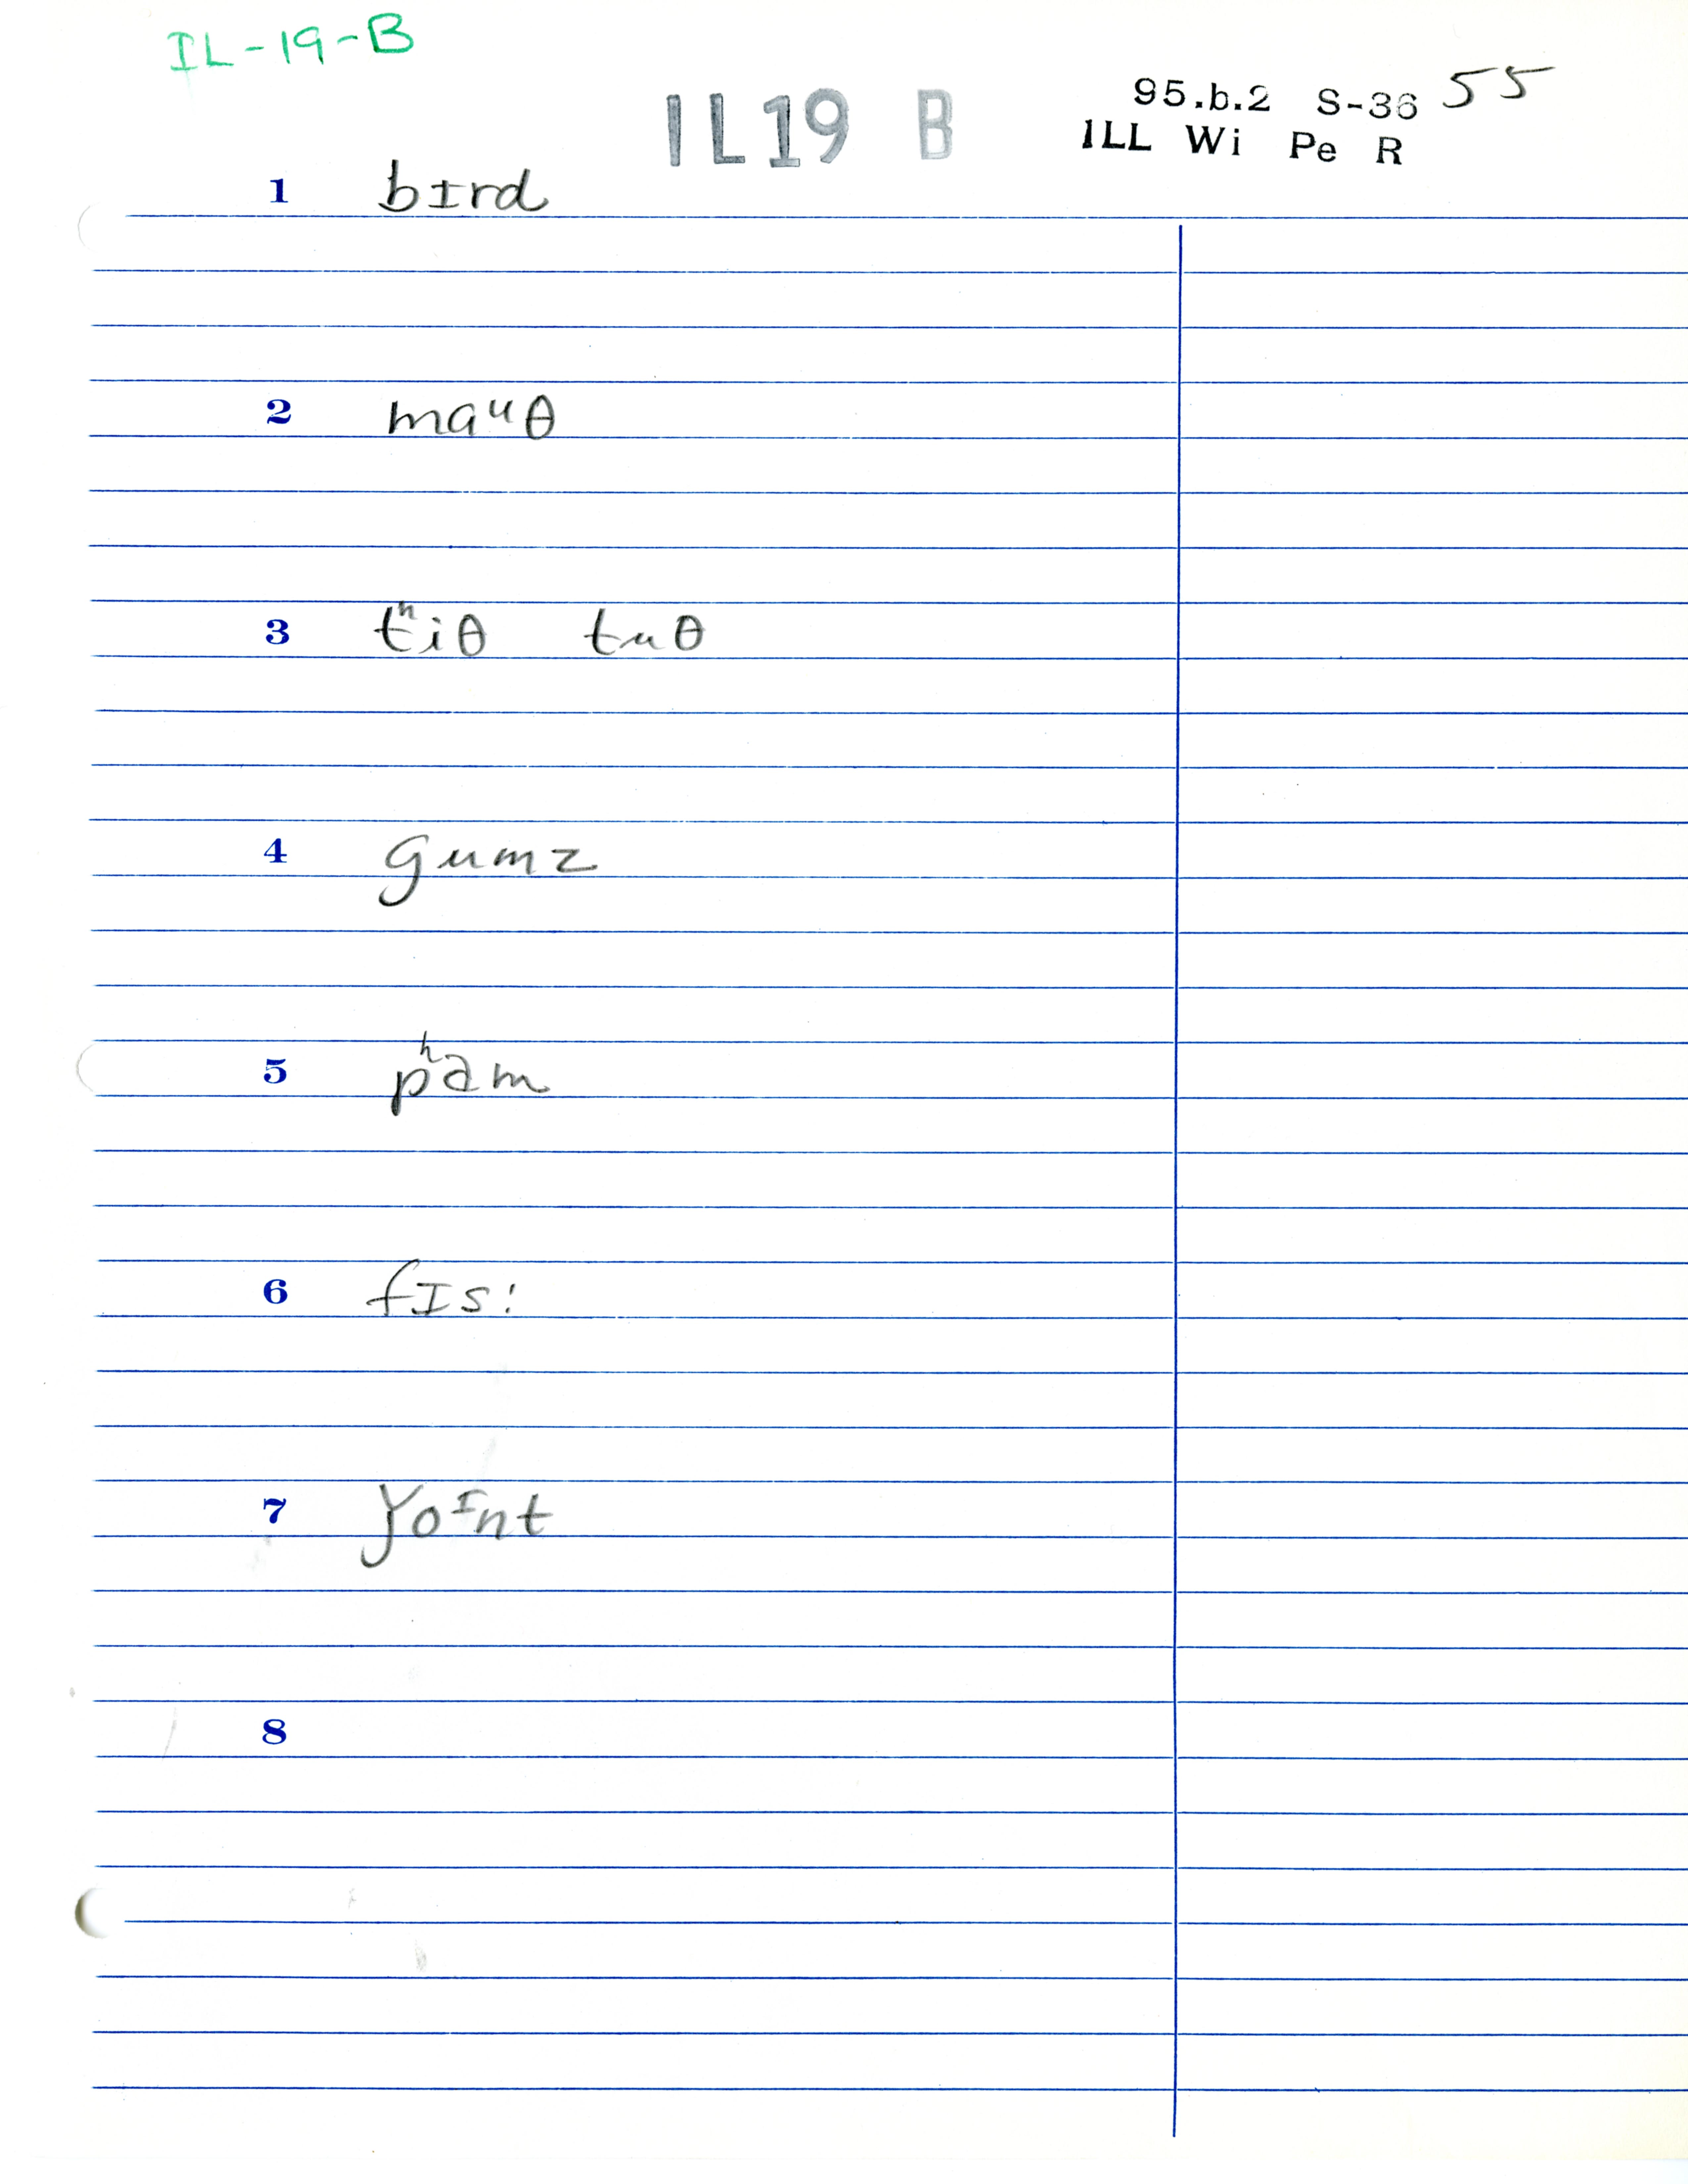 IL-19-B
IL19 B
95.b.2 S-36 55
ILL Wi Pe R
1 bɪrd
2 maᵘθ
3 tʰiθ tuθ
4 gumz
5 pʰam
6 fɪs:
7 ɣoᶦnt
8